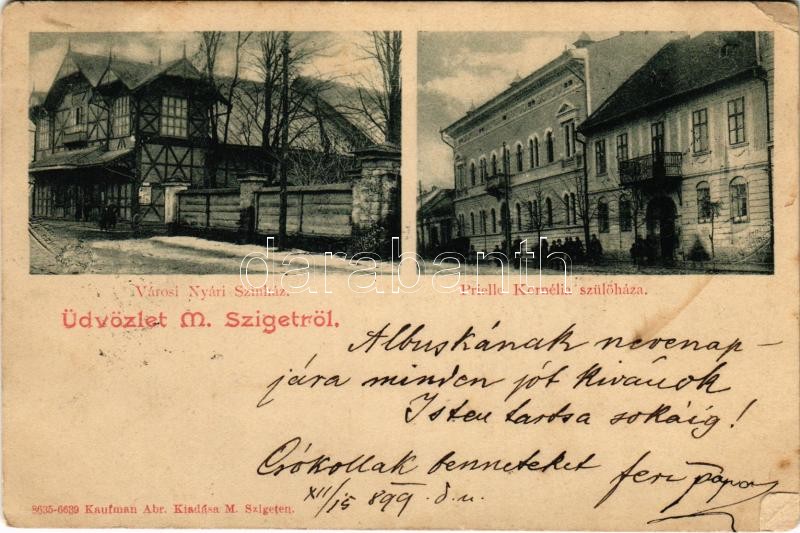 Városi Nyári Szinház.
Prielle Kornélia szülőháza.
darabanth
Üdvözlet M. Szigetről.
Albuskának nevenap-
jára minden jót kivánok
Isten tartsa sokáig!
Csókollak benneteket feri
XII/15 899. d.u.
8635-6639 Kaufman Abr. Kiadása M. Szigeten.